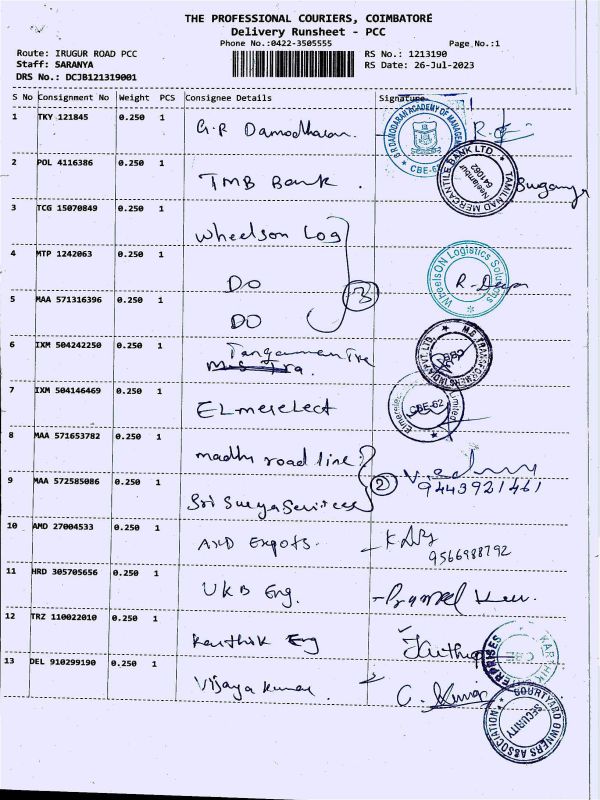 THE PROFESSIONAL COURIERS, COIMBATORE
Delivery Runsheet - PCC
Phone No.:0422-3505555 Page No.:1
Route: IRUGUR ROAD PCC RS No.: 1213190
Staff: SARANYA RS Date: 26-Jul-2023
DRS No.: DCJB121319001
S No Consignment No Weight PCS Consignee Details Signature
1 TKY 121845 0.250 1 G.R Damodharan
2 POL 4116386 0.250 1 TMB Bank. Suganya
3 TCG 15070849 0.250 1 Wheelson Log
4 MTP 1242063 0.250 1 DO
5 MAA 571316396 0.250 1 DO
3
6 IXM 504242250 0.250 1
7 IXM 504146469 0.250 1 ELmerelect
8 MAA 571653782 0.250 1 madhu road line
9 MAA 572585086 0.250 1 Sri Surya Services 2 9443921461
10 AMD 27004533 0.250 1 9566988792
11 HRD 305705656 0.250 1 UKB Eng.
12 TRZ 110022010 0.250 1 Karthik Eng
13 DEL 910299190 0.250 1 Vijaya kumar C. Kumar
G R DAMODARAN ACADEMY OF MANAGE
CBE-62
TAMILNAD MERCANTILE BANK LTD.
Neelambur
641062
WheelsON Logistics Solutions
M.G. TRANSFORMERS INDIA PVT. LTD.
CBE-62
COURTYARD OWNERS ASSOCIATION
SECURITY